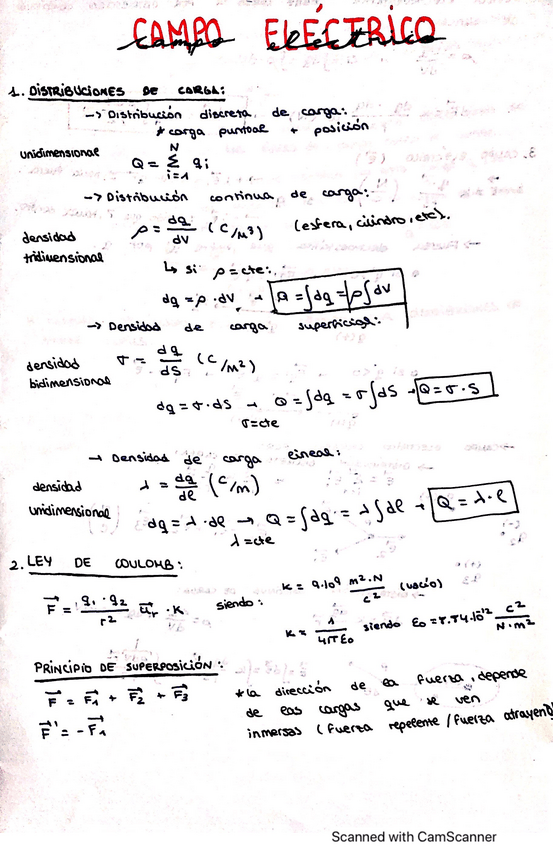 CAMPO ELÉCTRICO
campo eléctrico
1. DISTRIBUCIONES DE CARGA:
-> Distribución discreta de carga:
* carga puntual + posición
unidimensional
Q = Σ_{i=1}^{N} q_i
-> Distribución continua de carga:
densidad tridimensional ρ = dq/dV (C/m³) (esfera, cilindro, etc).
↳ si ρ = cte:
dq = ρ · dV → Q = ∫dq = ρ∫dV
→ Densidad de carga superficial:
densidad bidimensional σ = dq/dS (C/m²)
dq = σ · dS → Q = ∫dq = σ∫dS → Q = σ · S
σ = cte
→ Densidad de carga lineal:
densidad unidimensional λ = dq/dl (C/m)
dq = λ · dl → Q = ∫dq = λ∫dl → Q = λ · l
λ = cte
2. LEY DE COULOMB:
F⃗ = q₁ · q₂ / r² u⃗r · K siendo: K = 9·10⁹ m²·N/c² (vacío)
K = 1/4πε₀ siendo ε₀ = 8.84·10⁻¹² c²/N·m²
PRINCIPIO DE SUPERPOSICIÓN:
F⃗ = F⃗₁ + F⃗₂ + F⃗₃
F⃗' = -F⃗₁
* la dirección de la fuerza, depende
de las cargas que se ven
inmersas (fuerza repelente / fuerza atrayente)
Scanned with CamScanner